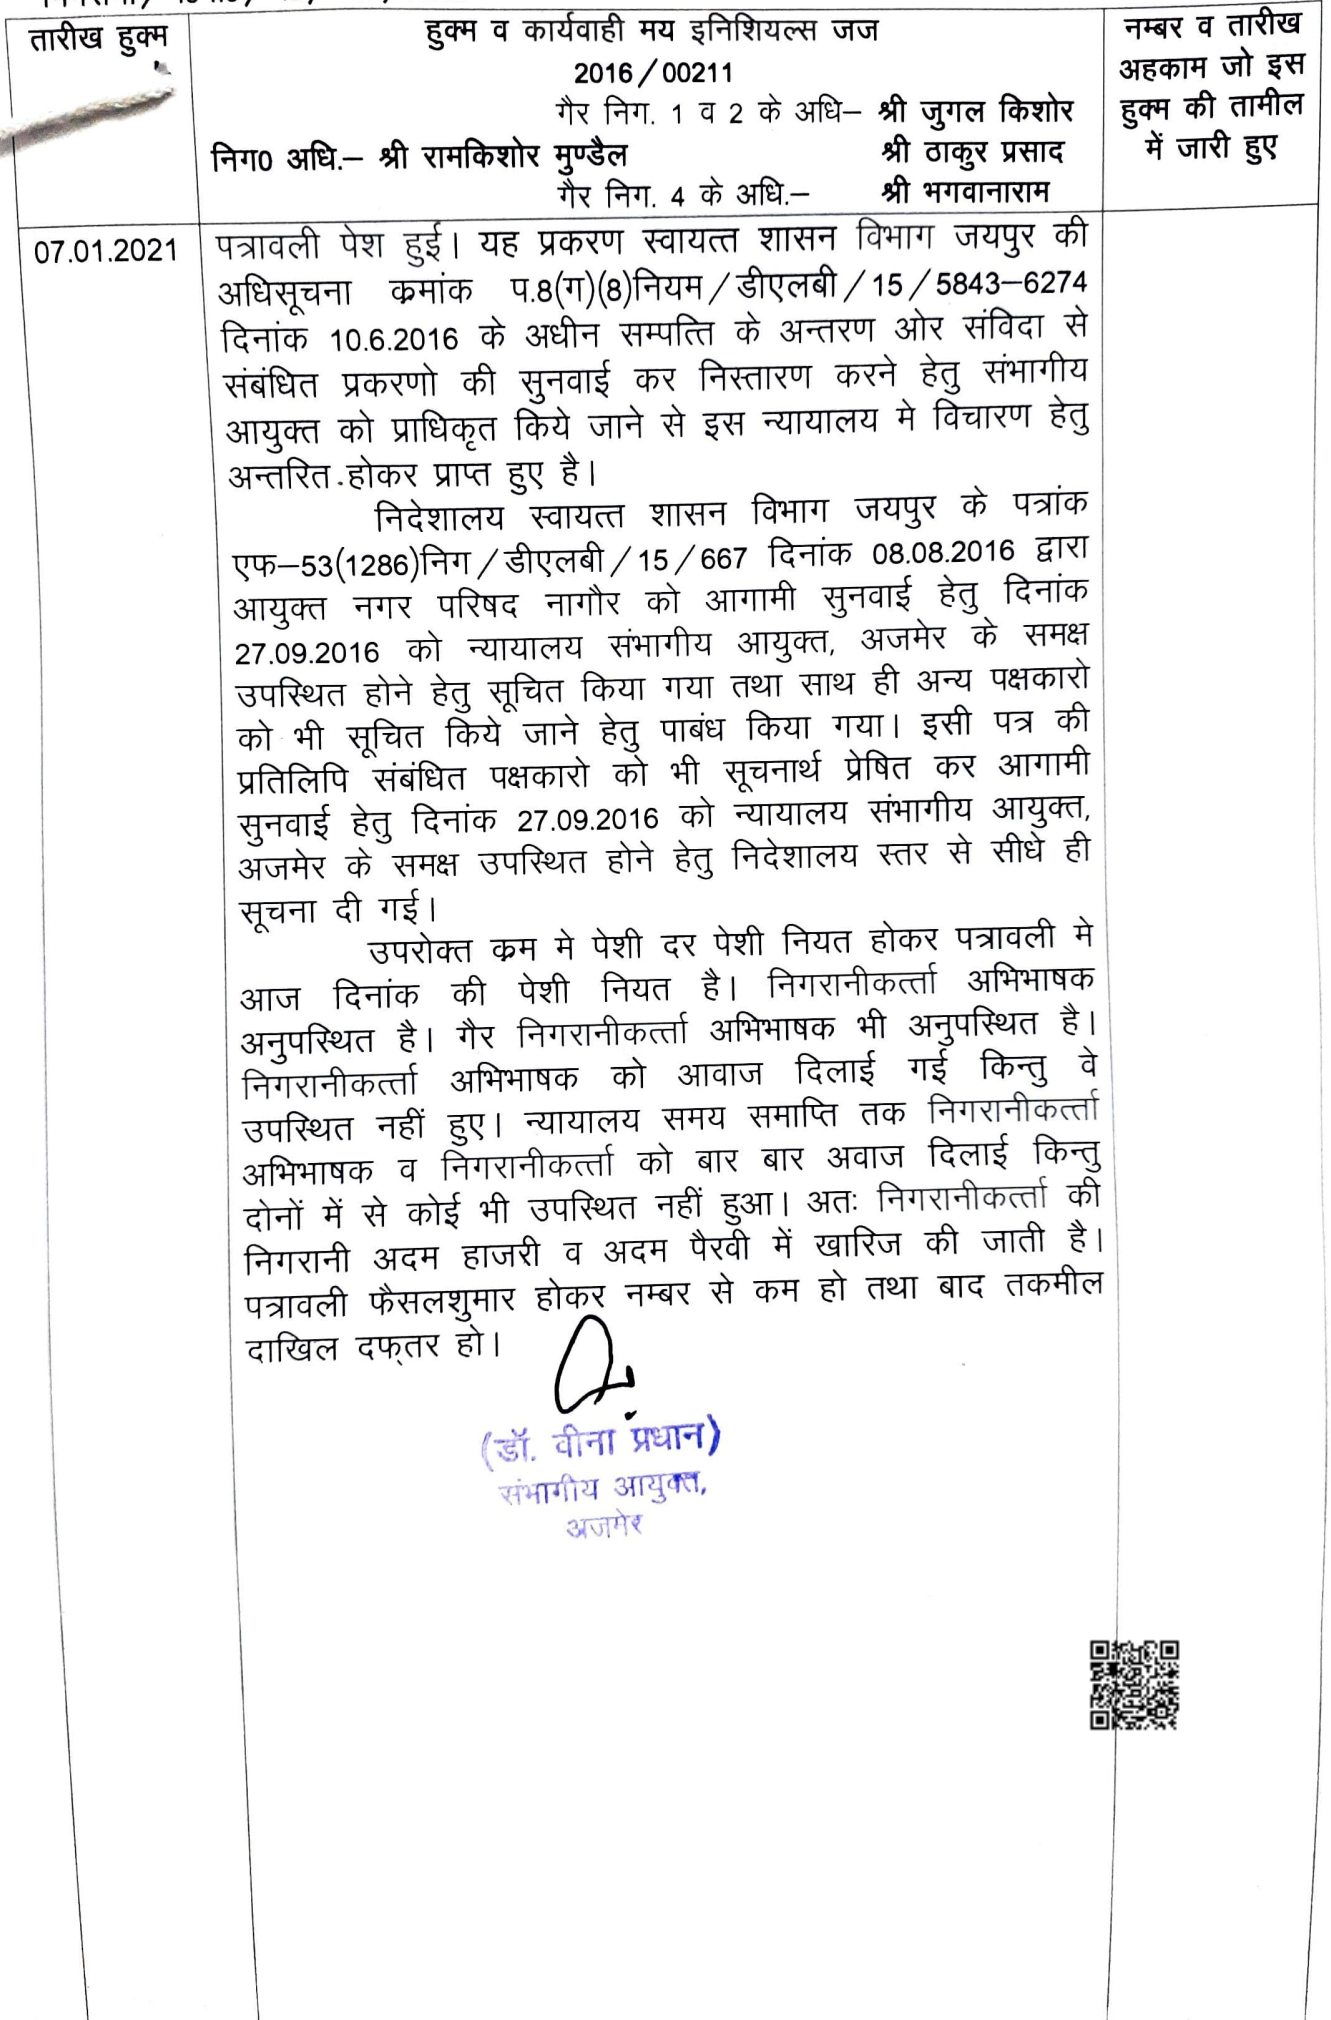 तारीख हुक्म
हुक्म व कार्यवाही मय इनिशियल्स जज
2016/00211
गैर निग. 1 व 2 के अधि– श्री जुगल किशोर
निग0 अधि.– श्री रामकिशोर मुण्डैल श्री ठाकुर प्रसाद
गैर निग. 4 के अधि.– श्री भगवानाराम
नम्बर व तारीख
अहकाम जो इस
हुक्म की तामील
में जारी हुए
07.01.2021
पत्रावली पेश हुई। यह प्रकरण स्वायत्त शासन विभाग जयपुर की
अधिसूचना क्रमांक प.8(ग)(8)नियम/डीएलबी/15/5843–6274
दिनांक 10.6.2016 के अधीन सम्पत्ति के अन्तरण ओर संविदा से
संबंधित प्रकरणो की सुनवाई कर निस्तारण करने हेतु संभागीय
आयुक्त को प्राधिकृत किये जाने से इस न्यायालय मे विचारण हेतु
अन्तरित होकर प्राप्त हुए है।
निदेशालय स्वायत्त शासन विभाग जयपुर के पत्रांक
एफ–53(1286)निग/डीएलबी/15/667 दिनांक 08.08.2016 द्वारा
आयुक्त नगर परिषद नागौर को आगामी सुनवाई हेतु दिनांक
27.09.2016 को न्यायालय संभागीय आयुक्त, अजमेर के समक्ष
उपस्थित होने हेतु सूचित किया गया तथा साथ ही अन्य पक्षकारो
को भी सूचित किये जाने हेतु पाबंध किया गया। इसी पत्र की
प्रतिलिपि संबंधित पक्षकारो को भी सूचनार्थ प्रेषित कर आगामी
सुनवाई हेतु दिनांक 27.09.2016 को न्यायालय संभागीय आयुक्त,
अजमेर के समक्ष उपस्थित होने हेतु निदेशालय स्तर से सीधे ही
सूचना दी गई।
उपरोक्त क्रम मे पेशी दर पेशी नियत होकर पत्रावली मे
आज दिनांक की पेशी नियत है। निगरानीकर्त्ता अभिभाषक
अनुपस्थित है। गैर निगरानीकर्त्ता अभिभाषक भी अनुपस्थित है।
निगरानीकर्त्ता अभिभाषक को आवाज दिलाई गई किन्तु वे
उपस्थित नहीं हुए। न्यायालय समय समाप्ति तक निगरानीकर्त्ता
अभिभाषक व निगरानीकर्त्ता को बार बार अवाज दिलाई किन्तु
दोनों में से कोई भी उपस्थित नहीं हुआ। अतः निगरानीकर्त्ता की
निगरानी अदम हाजरी व अदम पैरवी में खारिज की जाती है।
पत्रावली फैसलशुमार होकर नम्बर से कम हो तथा बाद तकमील
दाखिल दफ्तर हो।
(डॉ. वीना प्रधान)
संभागीय आयुक्त,
अजमेर